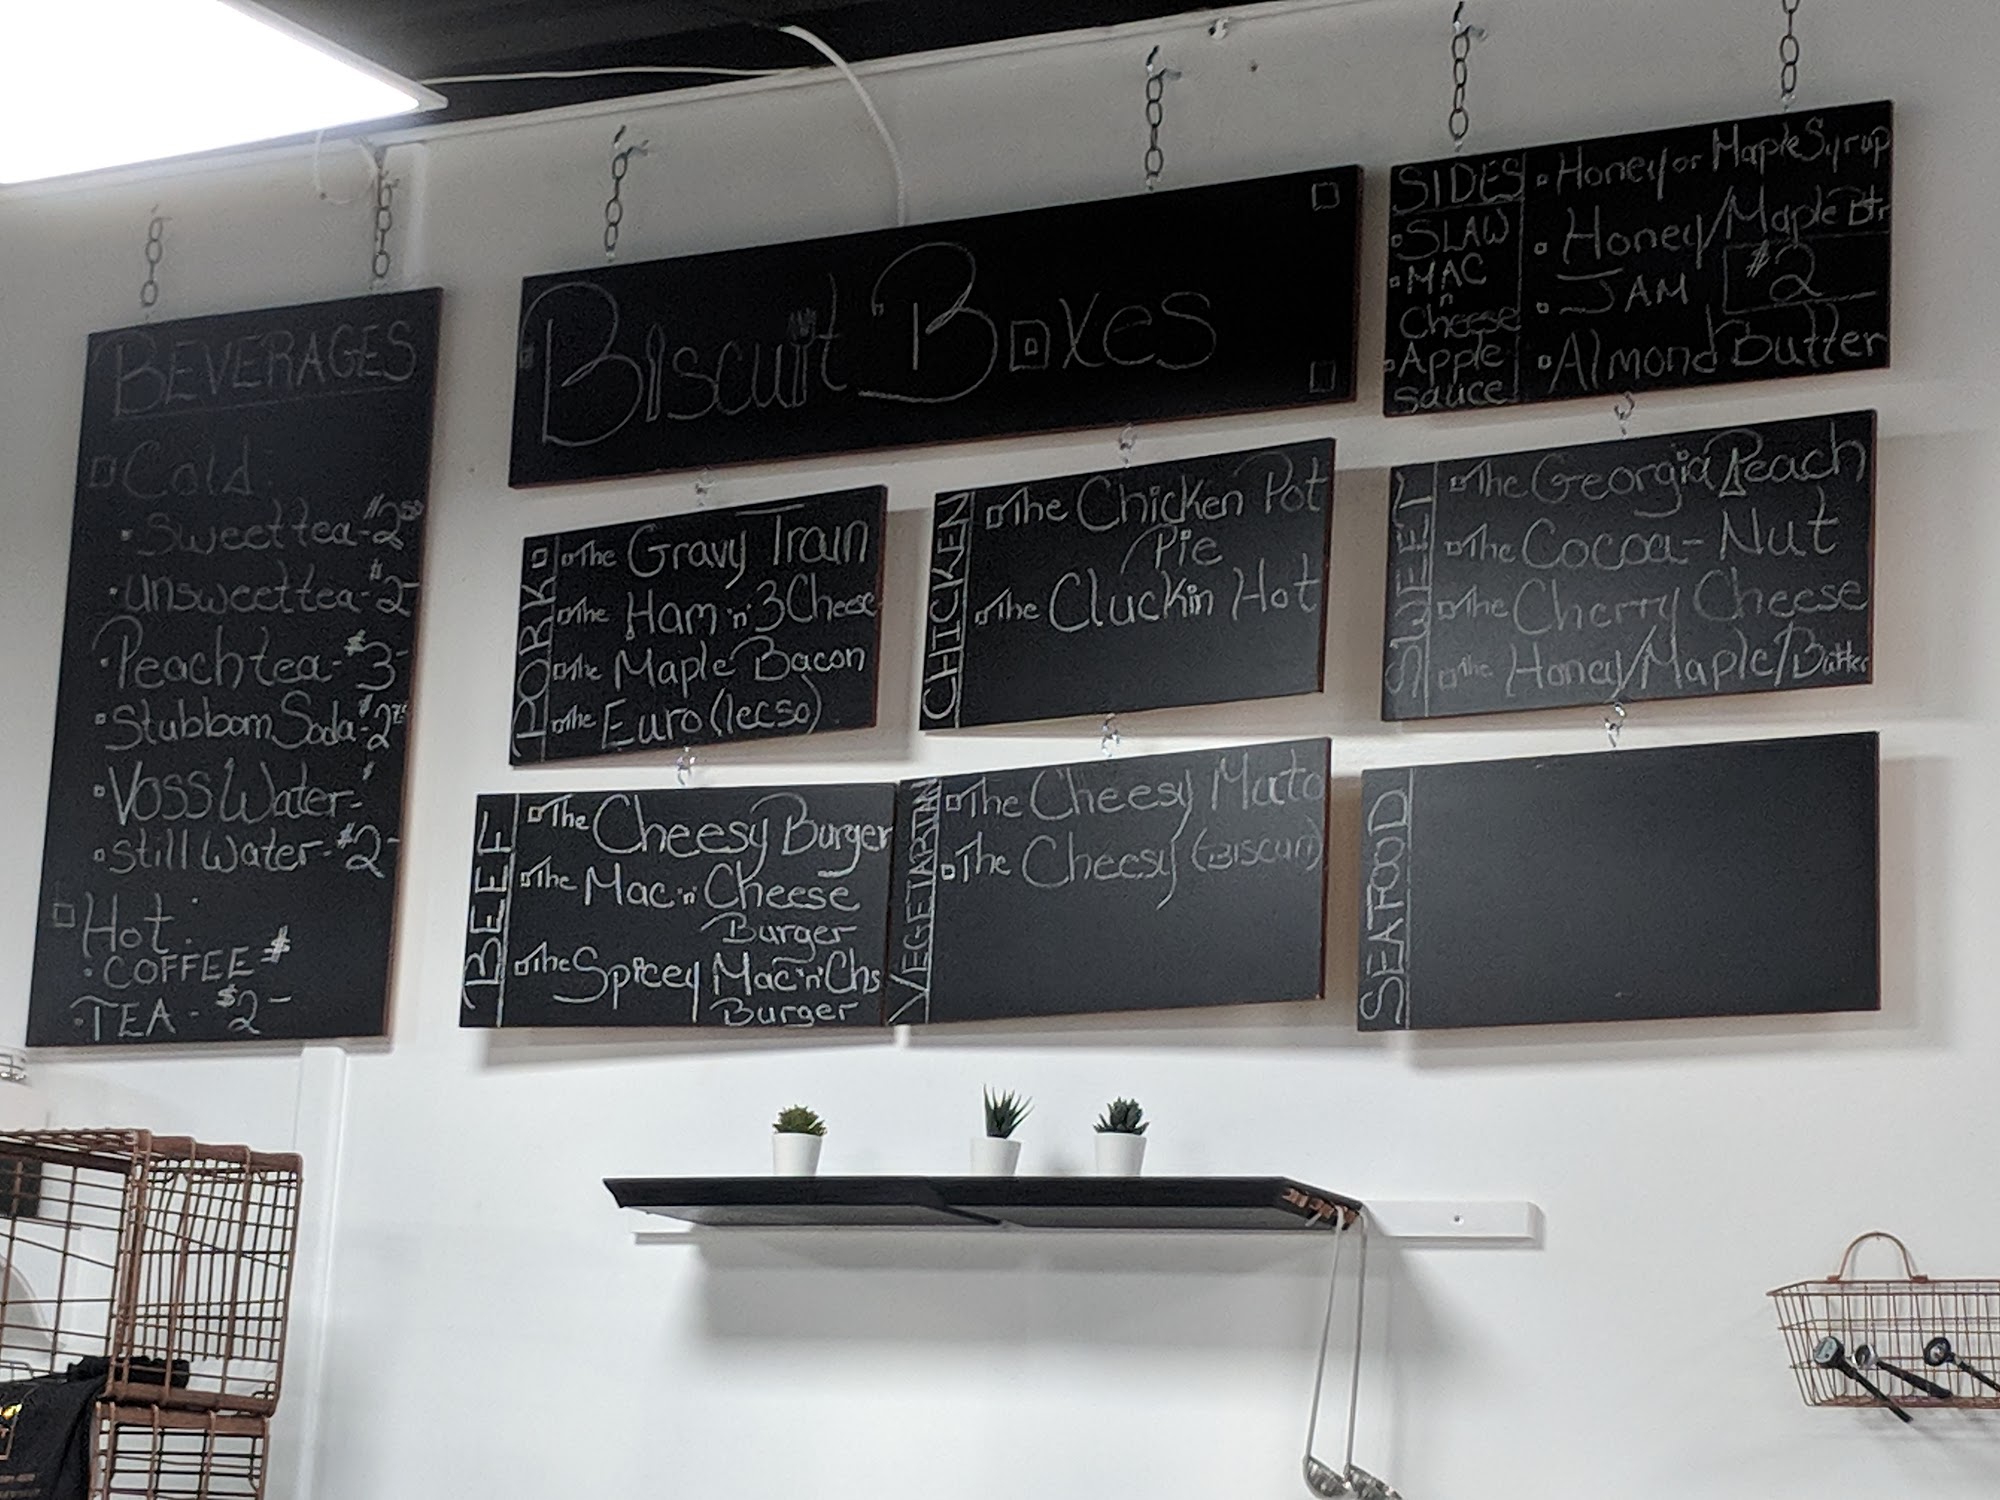 BEVERAGES
Cold:
Sweet tea - $2.50
Unsweet tea - $2-
Peach tea - $3-
Stubborn Soda - $2.75
VOSS Water-
Still Water - $2-
Hot:
COFFEE $
TEA - $2-
Biscuit Boxes
SIDES
SLAW
MAC
n
Cheese
Apple
Sauce
Honey or Maple Syrup
Honey/Maple Btr
JAM $2
Almond Butter
PORK
The Gravy Train
The Ham 'n' 3 Cheese
The Maple Bacon
The Euro (lecso)
CHICKEN
The Chicken Pot
Pie
The Cluckin Hot
SWEET
The Georgia Peach
The Cocoa-Nut
The Cherry Cheese
The Honey/Maple/Butter
BEEF
The Cheesy Burger
The Mac 'n' Cheese
Burger
The Spicey Mac 'n' Chs
Burger
VEGETARIAN
The Cheesy Mato
The Cheesy
SEAFOOD